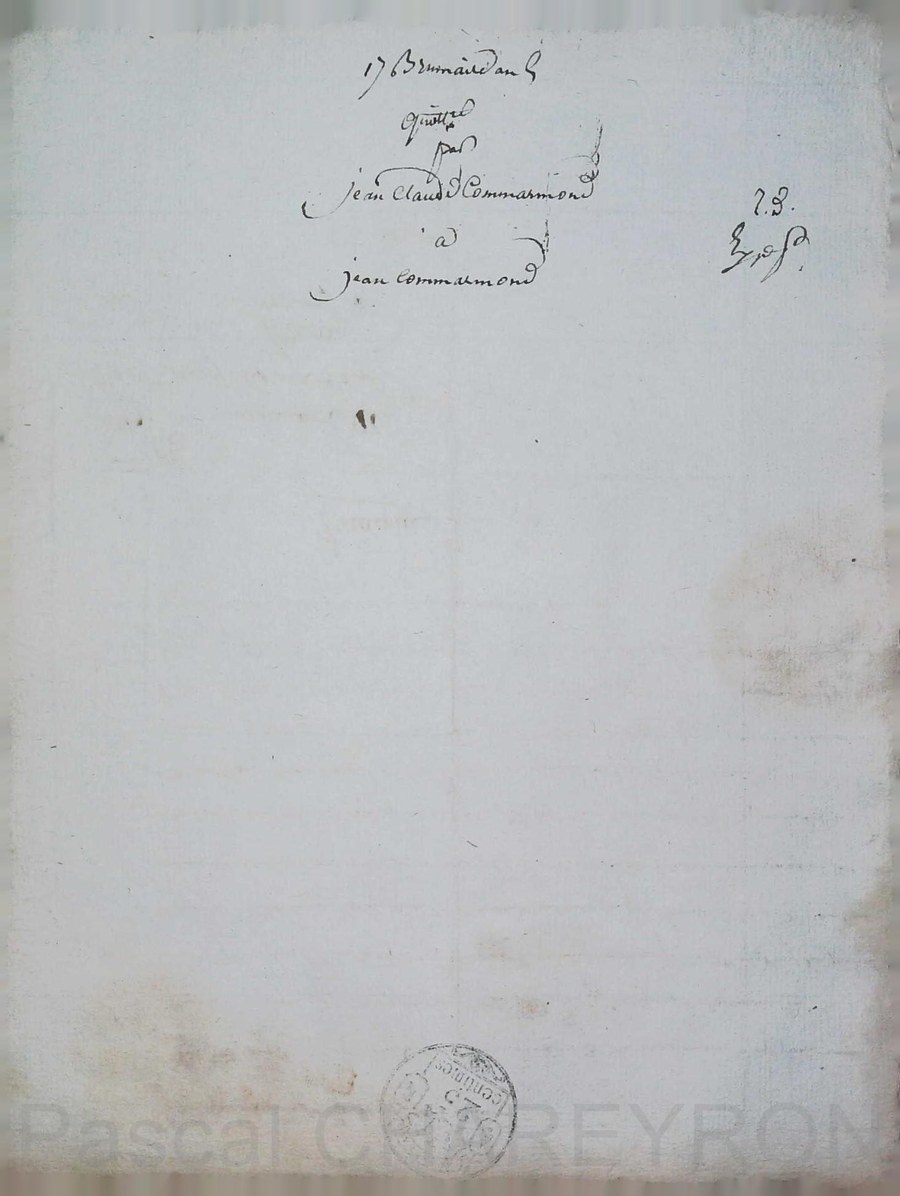 17 Brumaire an 5
quittce
par
jean Claude Commarmond
à
jean Commarmond
2.3.
Exp.
25
centimes
Pascal CHAREYRON